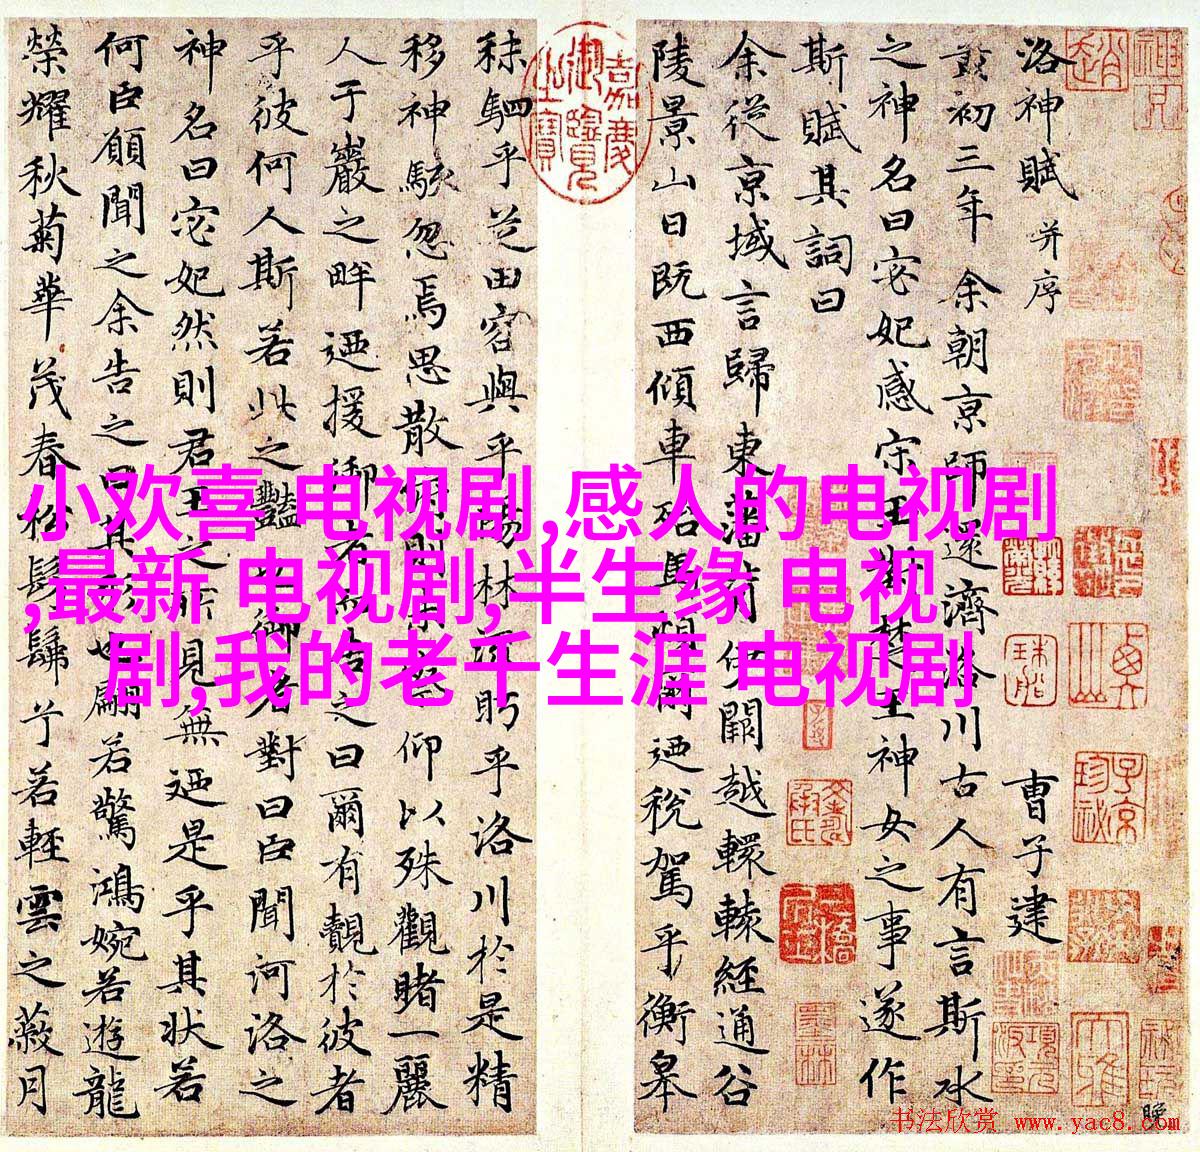 洛神賦 并序 曹子建
黃初三年余朝京師還濟洛川古人有言斯水
之神名曰宓妃感宋玉對楚王神女之事遂作
斯賦其詞曰
余從京域言歸東藩背伊闕越轘轅經通谷
陵景山日既西傾車殆馬煩爾迺稅駕乎衡皋
秣駟乎芝田容與乎陽林流眄乎洛川於是精
移神駭忽焉思散俯則未察仰以殊觀睹一麗
人于巖之畔迺援御者而告之曰爾有覿於彼者
乎彼何人斯若此之豔也御者對曰臣聞河洛之
神名曰宓妃然則君王之所見無迺是乎其状若
何臣願聞之余告之曰其形也翩若驚鴻婉若遊龍
榮耀秋菊華茂春松髣髴兮若輕雲之蔽月
嘉慶御覽之寶
小欢喜 电视剧,感人的电视剧
,最新 电视剧,半生缘 电视
剧,我的老千生涯 电视剧
书法欣赏 www.yac8.com